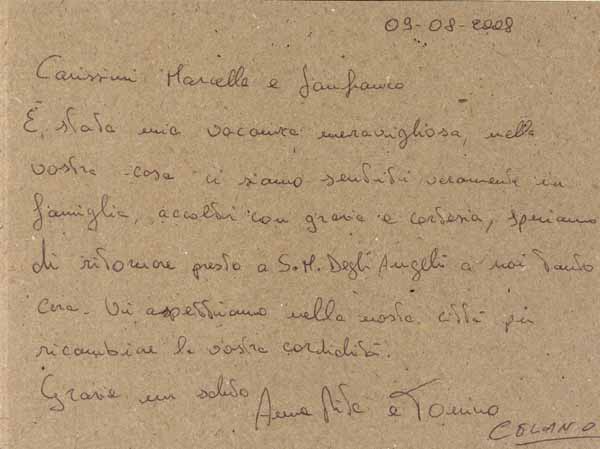 09-08-2008
Carissimi Marcella e Gianfranco
È stata una vacanza meravigliosa, nella
vostra casa ci siamo sentiti veramente in
famiglia, accolti con grazia e cortesia, speriamo
di ritornare presto a S.M. Degli Angeli a noi tanto
cara. Vi aspettiamo nella nostra città per
ricambiare la vostra cordialità.
Grazie un saluto Anna Rita e Tonino
CELANO